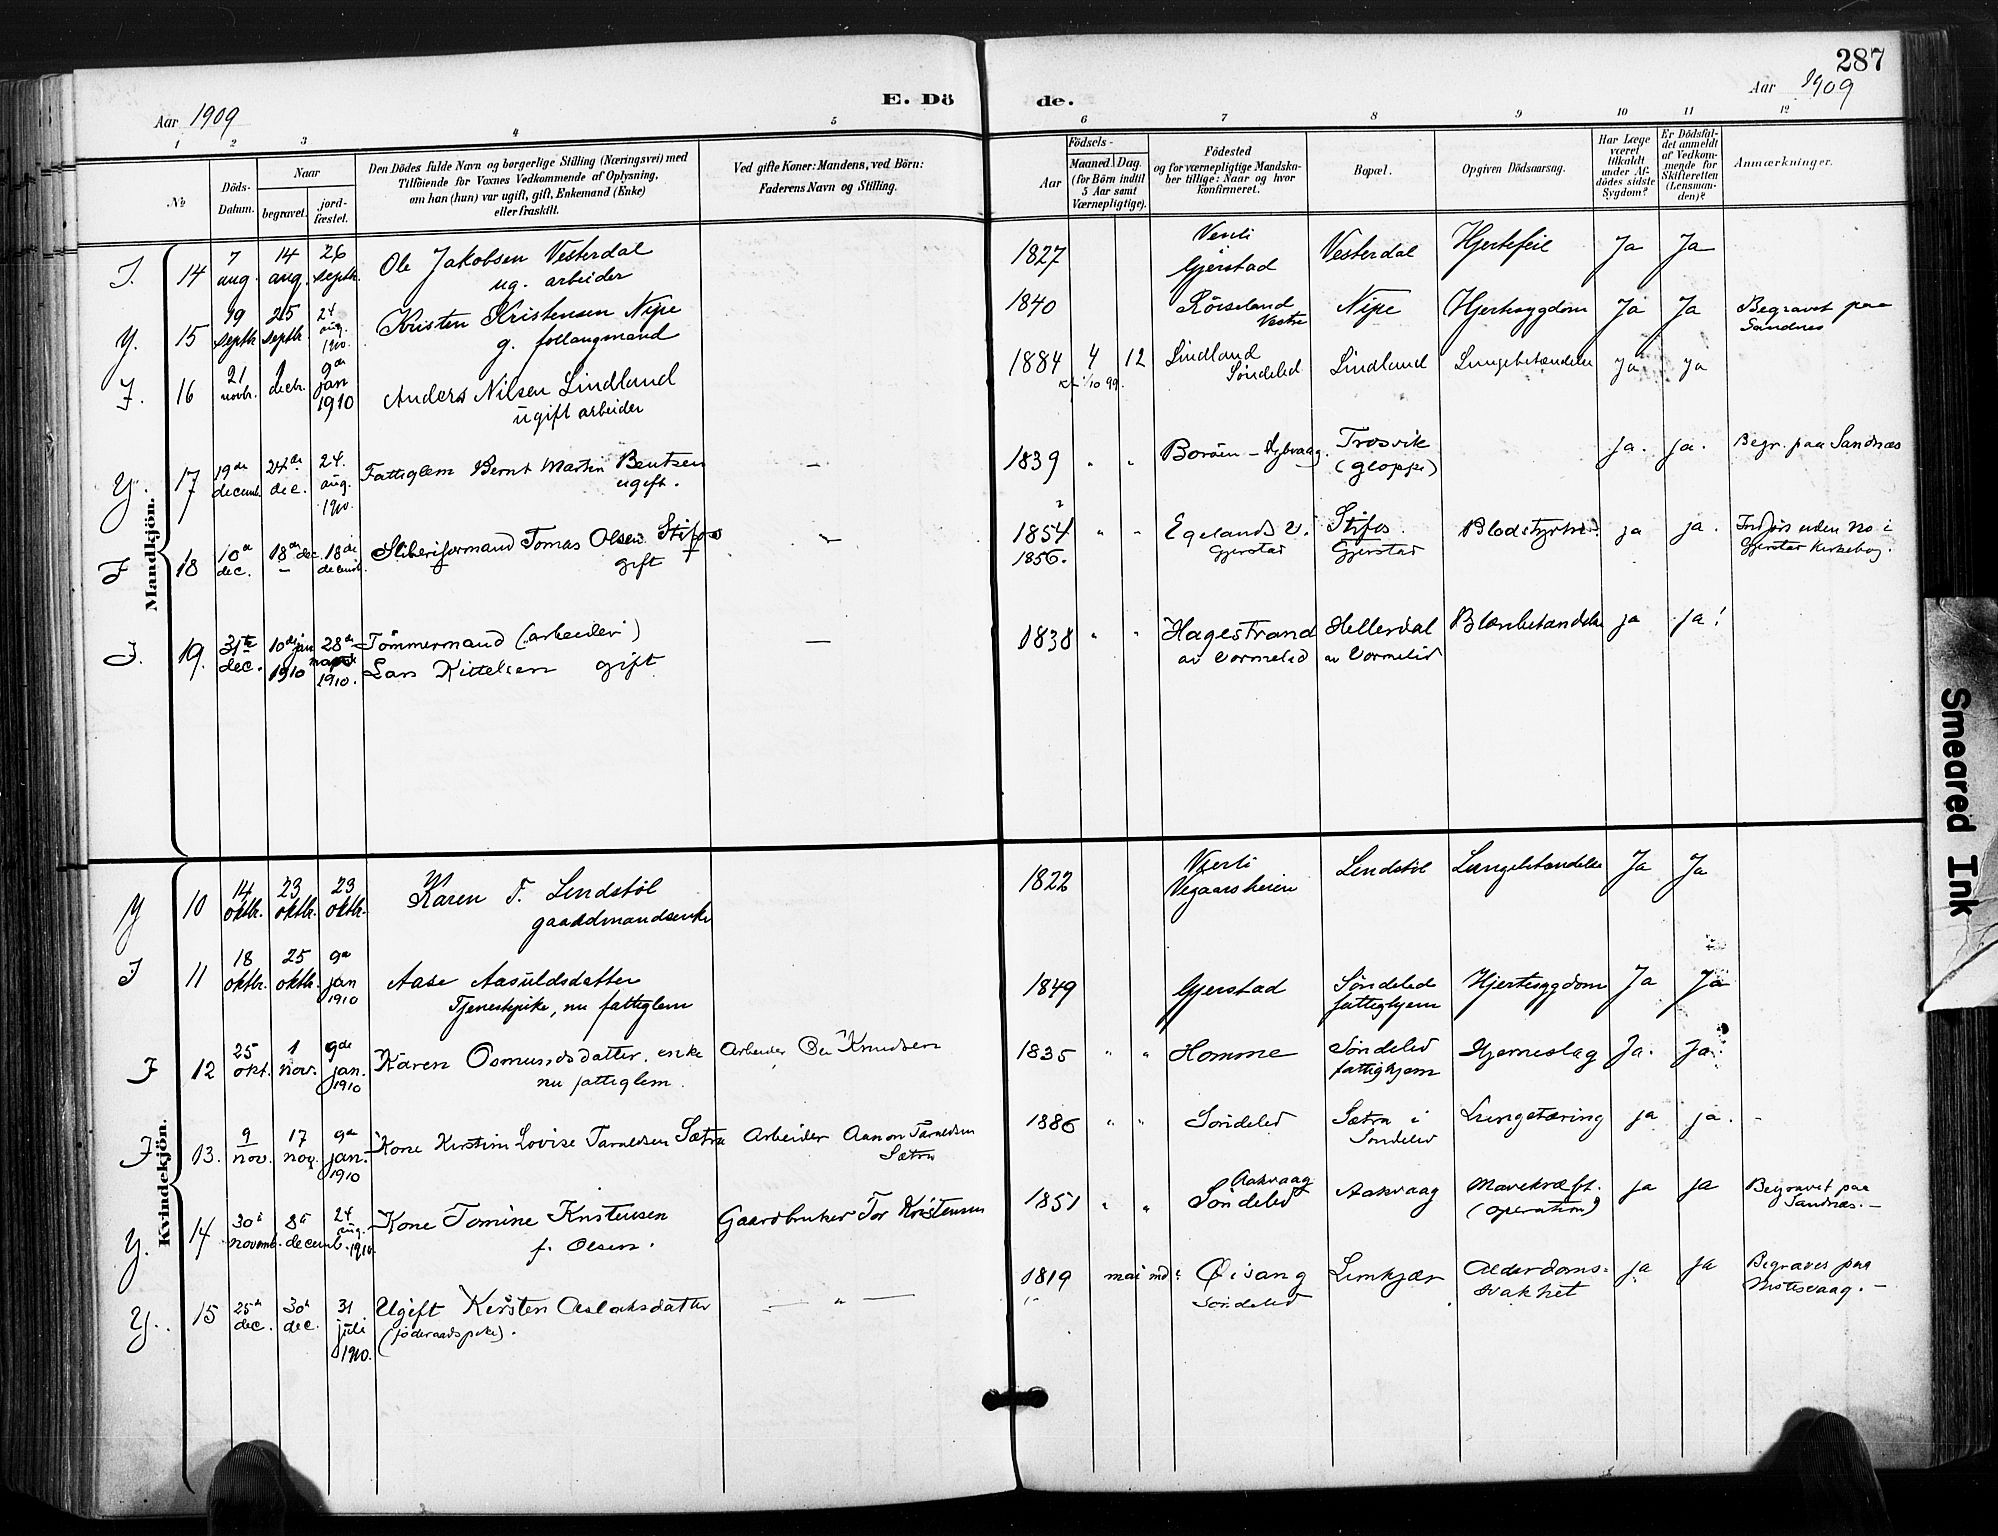 287
Aar 1909
E. Döde.
Aar 1909
1 2 3 4 5 6 7 8 9 10 11 12
№
Döds-Datum.
Naar
begravet.
jord-fæstet.
Den Dödes fulde Navn og borgerlige Stilling (Næringsvei) med
Tilföiende for Voxnes Vedkommende af Oplysning,
om han (hun) var ugift, gift, Enkemand (Enke)
eller fraskilt.
Ved gifte Koner: Mandens, ved Börn:
Faderens Navn og Stilling.
Födsels-
Aar
Maaned. Dag.
(for Börn indtil
5 Aar samt
Værnepligtige).
Födested
og for værnepligtige Mandska-
ber tillige: Naar og hvor
konfirmeret.
Bopæl.
Opgiven Dödsaarsag.
Har Læge
været
tilkaldt
under Af-
dödes sidste
Sygdom?
Er Dödsfal-
det anmeldt
af Vedkom-
mende for
Skifteretten
(Lensman-
den)?
Anmærkninger.
Mandkjön.
I. 14 7 aug. 14 aug. 26 septb. Ole Jakobsen Vesterdal
ug. arbeider
1827 i Gjerstad Vesterdal Hjertefeil Ja Ja
Y. 15 19 septb. 25 septb. 24 aug. 1910. Kristen Kristensen Nipe
g. follaugmand
1840 Röiseland Vestre Nipe Hjertesygdom Ja Ja Begravet paa Sandnes
I. 16 21 novbr. 1 decbr. 9de jan 1910 Anders Nilsen Lindland
ugift arbeider
1884 4 12 Lindland Söndeled Lindland Lungebetændelse Ja Ja
Y. 17 19de decemb. 24de dec. 24. aug. 1910. Fattiglem Bernt Martin Bentsen
ugift.
—
1839 " " Boröen - Dybvaag. Trosvik (Gloppe) ja. ja. Begr. paa Sandnæs
I 18 10de dec. 18de dec. 18de decemb. Sliberiformand Tomas Olsen Stifos
gift
—
1854 ? 1856. " " Egelands v. Gjerstad Stifos. Gjerstad Blodstyrtn. ja ja. Indförs uden No i Gjerstad Kirkebog.
I. 19. 31te dec. 10de jan 1910 28de 1910. Tömmermand (arbeider)
Lars Kittelsen gift
—
1838 " " Hagestrand av Vormelid Hellerdal av Vormelid Blærebetændelse ja ja!
Kvindekjön.
Y 10 14 oktbr. 23 oktbr. 23 oktbr. Karen T. Lendstöl
gaardmandsenke
1822 Vierli Vegaarsheien Lendstöl Lungebetændelse Ja Ja
I 11 18 oktbr. 25 oktbr. 9de jan 1910 Aase Aasuldsdatter
Tjenestepike, nu fattiglem
1849 Gjerstad Söndeled fattighjem Hjertesygdom Ja Ja
I 12 25 okt. 1 nov. 9de jan. 1910 Karen Osmundsdatter. enke
nu fattiglem.
Arbeider Ole Knudsen
1835 " " Homme Söndeled fattighjem Hjerneslag Ja. Ja.
I 13. 9 nov. 17 nov. 9de jan. 1910 Kone Kirstine Lovise Taraldsen Sætra Arbeider Aanon Taraldsen Sætra
1886 " " Söndeled Sætra i Söndeled Lungetæring ja ja. -
Y. 14 30te novemb. 8de decemb. 24 aug. 1910. Kone Tomine Kristensen
f. Olsen.
Gaardbruker Tor Kristensen
1851 " " Aakvaag Söndeled Aakvaag Mavekræft. (operation) ja ja Begravet paa Sandnæs.-
Y. 15 25de dec. 30te dec. 31 juli 1910. Ugift Kirsten Aslaksdatter
(föderaadspike).
— " —
1819 mai md: Öisang Söndeled Limkjær Alderdoms-svakhet ja ja Begravet paa Motesvaag.-
Smeared Ink